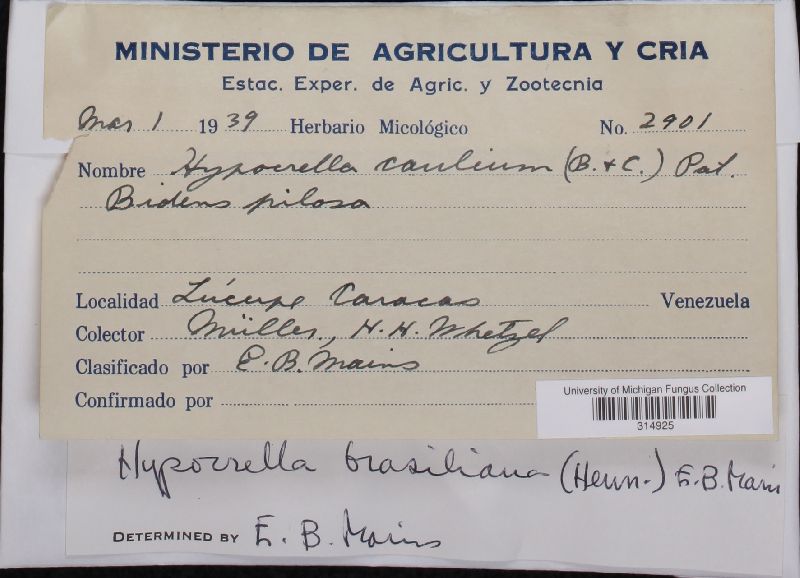 MINISTERIO DE AGRICULTURA Y CRIA
Estac. Exper. de Agric. y Zootecnia
Mar 1 1939 Herbario Micológico No. 2901
Nombre Hypocrella caulium (B. & C.) Pat.
Bidens pilosa
Localidad Caracas Venezuela
Colector Müller, H. H. Whetzel
Clasificado por E. B. Mains
Confirmado por
University of Michigan Fungus Collection
314925
Hypocrella brasiliana (Henn.) E. B. Mains
DETERMINED BY E. B. Mains